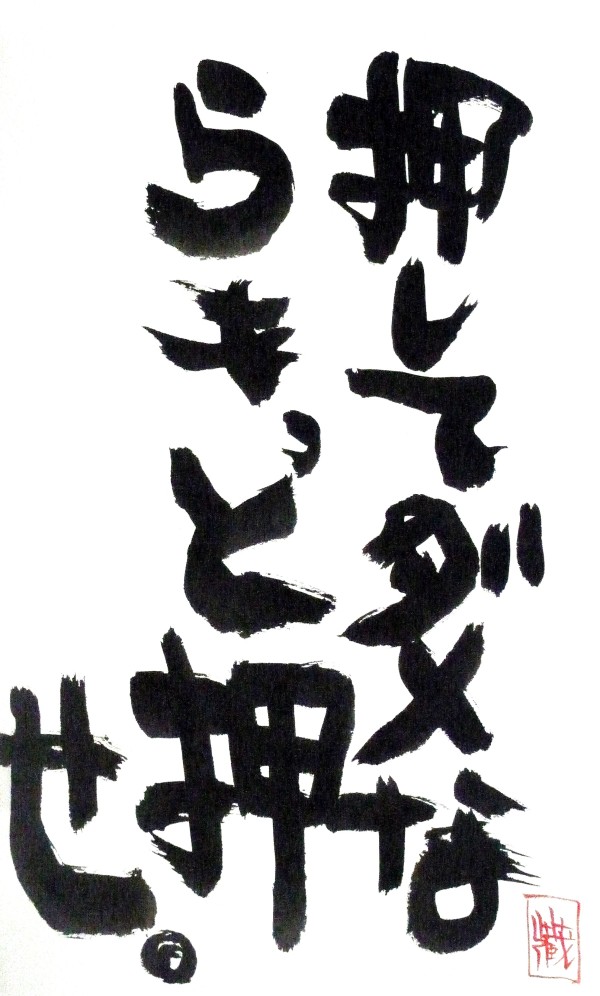 押してダメな
らもっと押
せ。